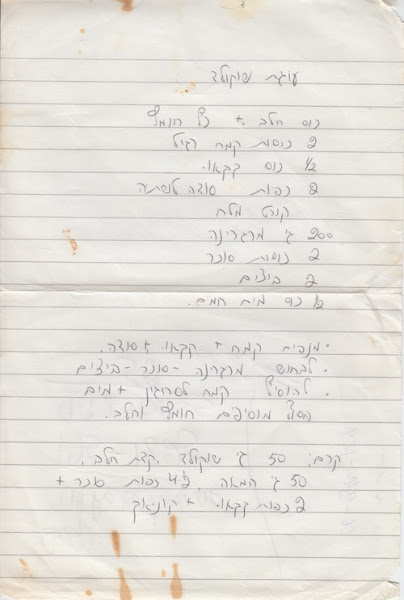 עוגת שוקולד
כוס חלב + כף חומץ
2 כוסות קמח רגיל
1/2 כוס קקאו.
2 כפות סודה לשתיה
קורט מלח
200 ג' מרגרינה
2 כוסות סוכר
2 ביצים
1/2 כוס מים חמים.
• מנפים קמח + קקאו + סודה.
• לבחוש מרגרנה - סוכר - ביצים
• להוסיף קמח לסרוגין + מים
הסוף מוסיפים חומץ וחלב.
קרם: 50 ג' שוקולד קצת חלב,
50 ג' חמאה, כפות סוכר +
2 כפות קקאו + קוניאק